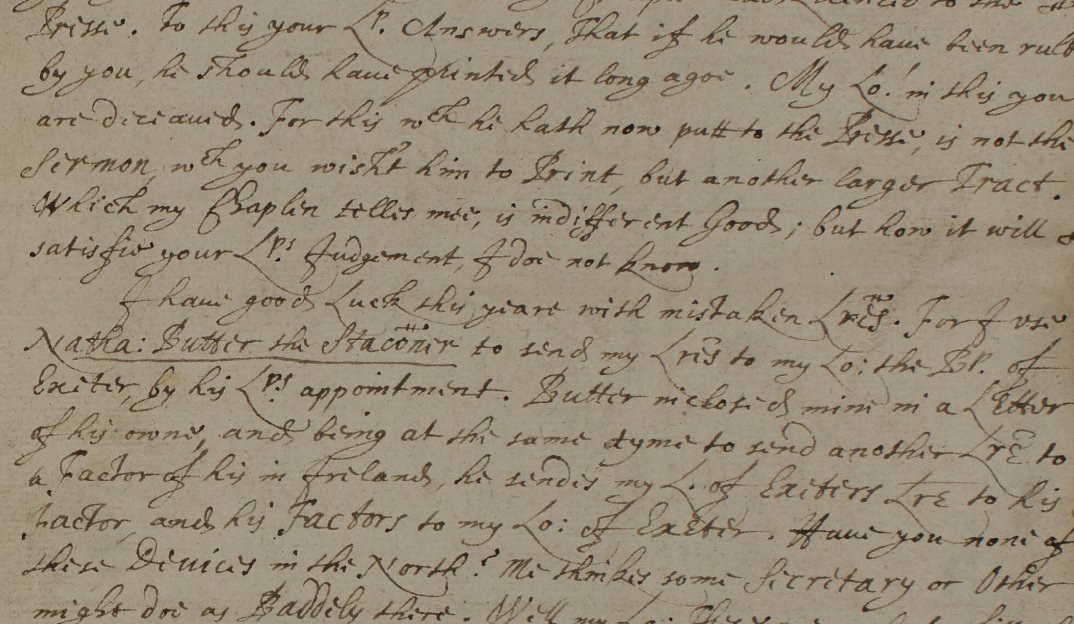 to the
Presse. To this your Lp. Answers, That if he would have been ruld
by you, he should have printed it long agoe. My Lo: in this you
are deceaued. For this wch he hath now putt to the Presse, is not the
Sermon, wch you wisht him to Print, but another larger Tract.
Which my Chaplin telles mee, is indifferent Good; but how it will
satisfie your Lps Judgement, I doe not know.
I haue good Luck this yeare with mistaken Lres. For I vse
Natha: Butter the Staconer to send my Lres to my Lo: the Bp. of
Exeter, by his Lps appointment. Butter inclosed mine in a Letter
of his owne, and being at the same tyme to send another Lre to
a Factor of his in Ireland, he sendes my L. of Exeters Lre to his
Factor, and his Factors to my Lo: of Exeter. Haue you none of
these Deuices in the North? Me thinkes some Secretary or Other
might doe as Baddely there. Well my Lo: